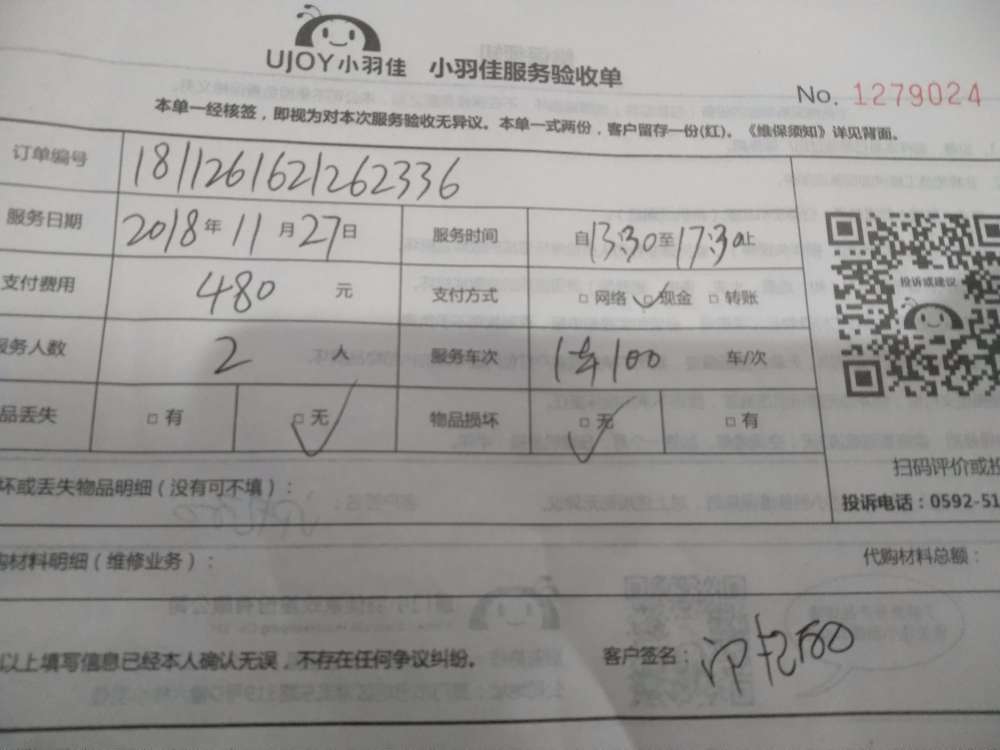 UJOY小羽佳 小羽佳服务验收单
No. 1279024
本单一经核签，即视为对本次服务验收无异议。本单一式两份，客户留存一份(红)。《维保须知》详见背面。
订单编号 1811261621262336
服务日期 2018年11月27日 服务时间 自13:30至17:30止
支付费用 480 元 支付方式 □网络 □现金 □转账
服务人数 2 人 服务车次 1车100 车/次
品丢失 □有 □无 物品损坏 □无 □有
投诉或建议
扫码评价或投
坏或丢失物品明细（没有可不填）：
投诉电话：0592-51
购材料明细（维修业务）： 代购材料总额：
以上填写信息已经本人确认无误，不存在任何争议纠纷。 客户签名：